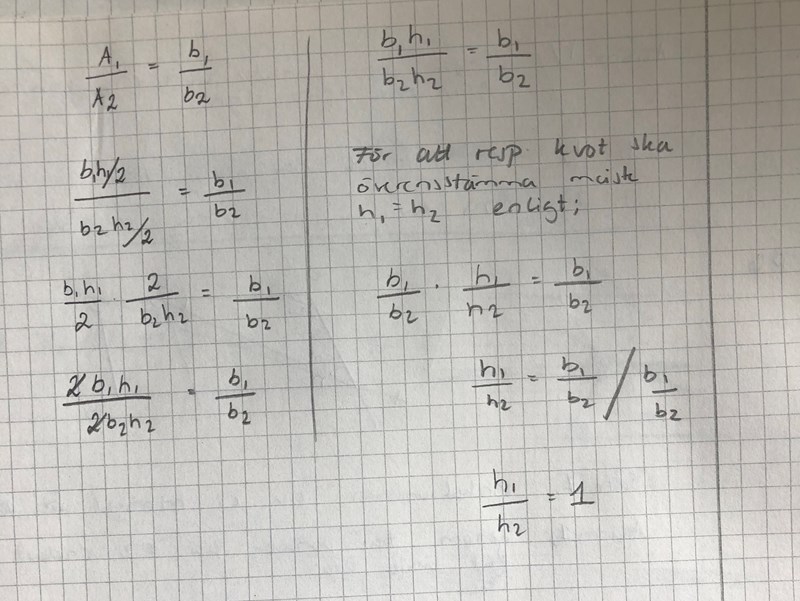 A₁/A2 = b₁/b2
b₁h₁/2 / b2h2/2 = b₁/b2
b₁h₁/2 · 2/b₂h₂ = b₁/b2
2b₁h₁/2b₂h₂ = b₁/b₂
b₁h₁/b₂h₂ = b₁/b₂
För att resp kvot ska
överensstämma måste
h₁ = h₂ enligt;
b₁/b₂ · h₁/h₂ = b₁/b₂
h₁/h₂ = b₁/b₂ / b₁/b₂
h₁/h₂ = 1